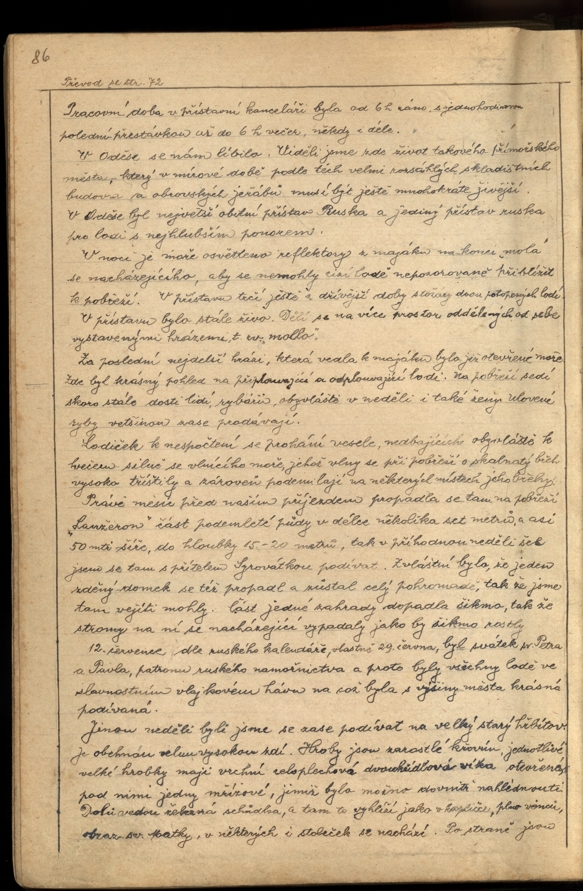 86
Převod ze str. 72
Pracovní doba v přístavní kanceláři byla od 6 h ráno s jednohodinovou
polední přestávkou až do 6 h večer, někdy i déle.
V Oděse se nám líbilo. Viděli jsme zde život takového přímořského
města, který v mírové době podle těch velmi rozsáhlých skladištních
budov a obrovských jeřábů musí být ještě mnohokráte živější.
V Oděse byl největší obilní přístav Ruska a jediný přístav ruska
pro lodi s nejhlubším ponorem.
V noci je moře osvětleno reflektory z majáku na konci "mola"
se nacházejícího, aby se nemohly cizí lodě nepozorovaně přiblížit
k pobřeží. V přístavu trčí ještě z dřívější doby stožáry dvou potopených lodí.
V přístavu bylo stále živo. Dělí se na více prostor oddělených od sebe
vystavenými hrázemi, t. zv. "mollo".
Za poslední nejdelší hrází, která vedla k majáku bylo již otevřené moře
Zde byl krásný pohled na připlouvající a odplouvající lodi. Na pobřeží sedí
skoro stále dosti lidí, rybářů, obzvláště v neděli i také ženy. Ulovené
ryby většinou zase prodávají.
Lodiček k nespočtení se prohání vesele, nedbajících obzvláště k
večeru silně se vlnícího moře, jehož vlny se při pobřeží o skalnatý břeh
vysoko tříštily a zároveň podemílají na některých místech jeho břehy.
Právě měsíc před naším příjezdem propadla se tam na pobřeží
"Lanžeron" část podemleté půdy v délce několika set metrů, a asi
50 mtr šíře, do hloubky 15-20 metrů, tak v příhodnou neděli šel
jsem se tam s přítelem Syrovátkou podívat. Zvláštní bylo, že jeden
zděný domek se též propadl a zůstal celý pohromadě, tak že jsme
tam vejíti mohly. Část jedné zahrady dopadla šikmo, tak že
stromy na ní se nacházející vypadaly jako by šikmo rostly
12. července (dle ruského kalendáře, vlastně 29. června, byl svátek sv. Petra
a Pavla, patronu ruského námořnictva a proto byly všechny lodě ve
slavnostním vlajkovém hávu na což byla s výšiny města krásná
podívaná.
Jinou neděli byli jsme se zase podívat na velký starý hřbitov
Je obehnán velmi vysokou zdí. Hroby jsou zarostlé křovím, jednotlivé
velké hrobky mají vrchní celoplechová dvoukřídlová víka otevřená,
pod nimi jedny mřížové, jimiž bylo možno dovnitř nahlédnouti
Dolů vedou železná schůdka, a tam to vyhlíží jako v kapličce, plno věnců,
obraz sv. Matky, v některých i stoleček se nachází. Po straně jsou